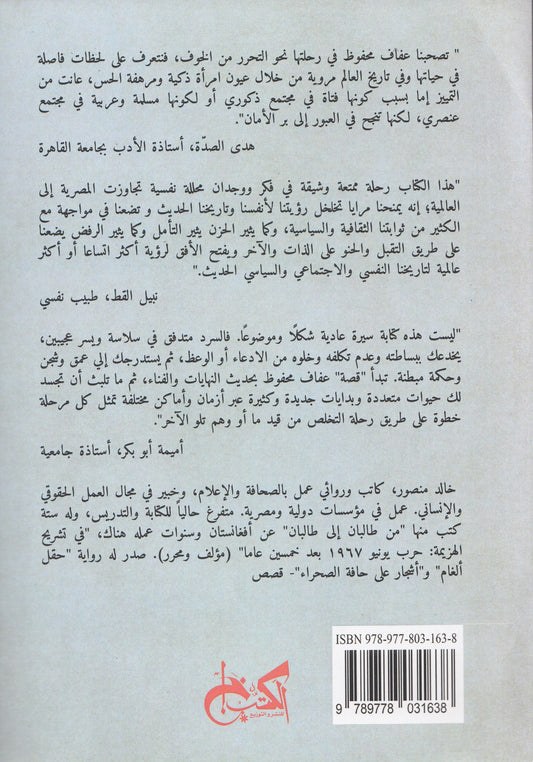 " تصحبنا عفاف محفوظ في رحلتها نحو التحرر من الخوف، فنتعرف على لحظات فاصلة
في حياتها وفي تاريخ العالم مروية من خلال عيون امرأة ذكية ومرهفة الحس، عانت من
التمييز إما بسبب كونها فتاة في مجتمع ذكوري أو لكونها مسلمة وعربية في مجتمع
عنصري، لكنها تنجح في العبور إلى بر الأمان".
هدى الصدّة، أستاذة الأدب بجامعة القاهرة
"هذا الكتاب رحلة ممتعة وشيقة في فكر ووجدان محللة نفسية تجاوزت المصرية إلى
العالمية؛ إنه يمنحنا مرايا تخلخل رؤيتنا لأنفسنا وتاريخنا الحديث و تضعنا في مواجهة مع
الكثير من ثوابتنا الثقافية والسياسية، وكما يثير الحزن يثير التأمل وكما يثير الرفض يضعنا
على طريق التقبل والحنو على الذات والآخر ويفتح الأفق لرؤية أكثر اتساعا أو أكثر
عالمية لتاريخنا النفسي والاجتماعي والسياسي الحديث."
نبيل القط، طبيب نفسي
"ليست هذه كتابة سيرة عادية شكلًا وموضوعًا. فالسرد متدفق في سلاسة ويسر عجيبين،
يخدعك ببساطته وعدم تكلفه وخلوه من الادعاء أو الوعظ، ثم يستدرجك إلى عمق وشجن
وحكمة مبطنة. تبدأ "قصة" عفاف محفوظ بحديث النهايات والفناء، ثم ما تلبث أن تجسد
لك حيوات متعددة وبدايات جديدة وكثيرة عبر أزمان وأماكن مختلفة تمثل كل مرحلة
خطوة على طريق رحلة التخلص من قيد ما أو وهم تلو الآخر".
أميمة أبو بكر، أستاذة جامعية
خالد منصور، كاتب وروائي عمل بالصحافة والإعلام، وخبير في مجال العمل الحقوقي
والإنساني. عمل في مؤسسات دولية ومصرية. متفرغ حالياً للكتابة والتدريس، وله ستة
كتب منها "من طالبان إلى طالبان" عن أفغانستان وسنوات عمله هناك، "في تشريح
الهزيمة: حرب يونيو ١٩٦٧ بعد خمسين عاما" (مؤلف ومحرر). صدر له رواية "حقل
ألغام" و"أشجار على حافة الصحراء"- قصص
ISBN 978-977-803-163-8
9 789778 031638
الكتب خان
للنشر والتوزيع